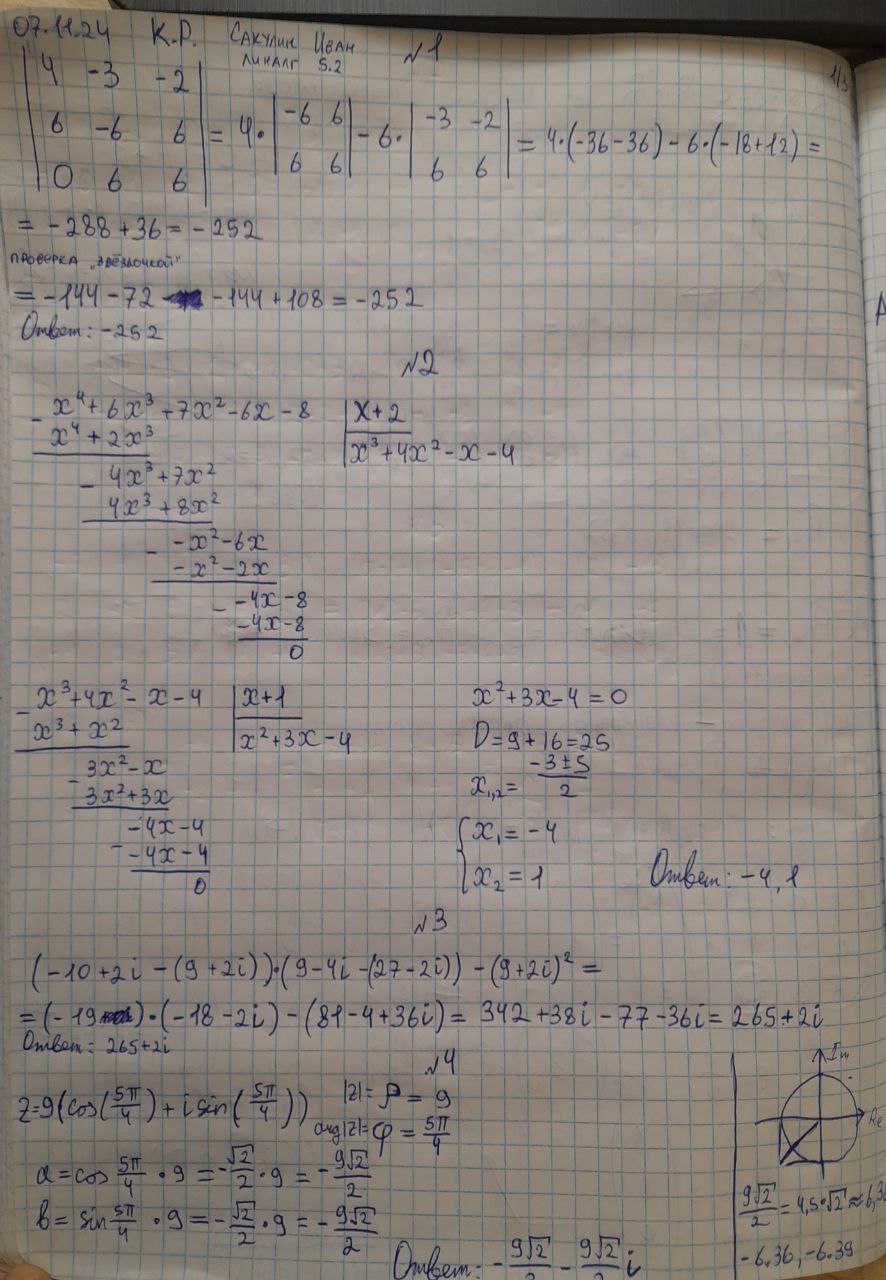 07.11.24 К.Р. Сакулин Иван
линалг 5.2
№1
1/3
| 4 -3 -2 |
| 6 -6 6 | = 4· | -6 6 | - 6· | -3 -2 | = 4·(-36-36) - 6·(-18+12) =
| 0 6 6 | | 6 6 | | 6 6 |
= -288+36 = -252
проверка „звёздочкой"
= -144-72 -144+108 = -252
Ответ: -252
№2
x⁴+6x³+7x²-6x-8 | x+2
x⁴+2x³ | x³+4x²-x-4
4x³+7x²
4x³+8x²
-x²-6x
-x²-2x
-4x-8
-4x-8
0
x³+4x²-x-4 | x+1
x³+x² | x²+3x-4
3x²-x
3x²+3x
-4x-4
-4x-4
0
x²+3x-4=0
D=9+16=25
x₁,₂= (-3±5)/2
{ x₁=-4
x₂=1
Ответ: -4, 1
№3
(-10+2i-(9+2i))·(9-4i-(27-2i))-(9+2i)² =
=(-19)·(-18-2i)-(81-4+36i)= 342+38i-77-36i=265+2i
Ответ: 265+2i
№4
z=9(cos(5π/4)+i sin(5π/4))
|z|=ρ=9
arg|z|=φ=5π/4
a=cos 5π/4 ·9=-√2/2·9=-9√2/2
b=sin 5π/4 ·9=-√2/2·9=-9√2/2
Ответ: -9√2/2 - 9√2/2 i
Im
Re
9√2/2=4,5·√2≈6,36
-6.36, -6.39